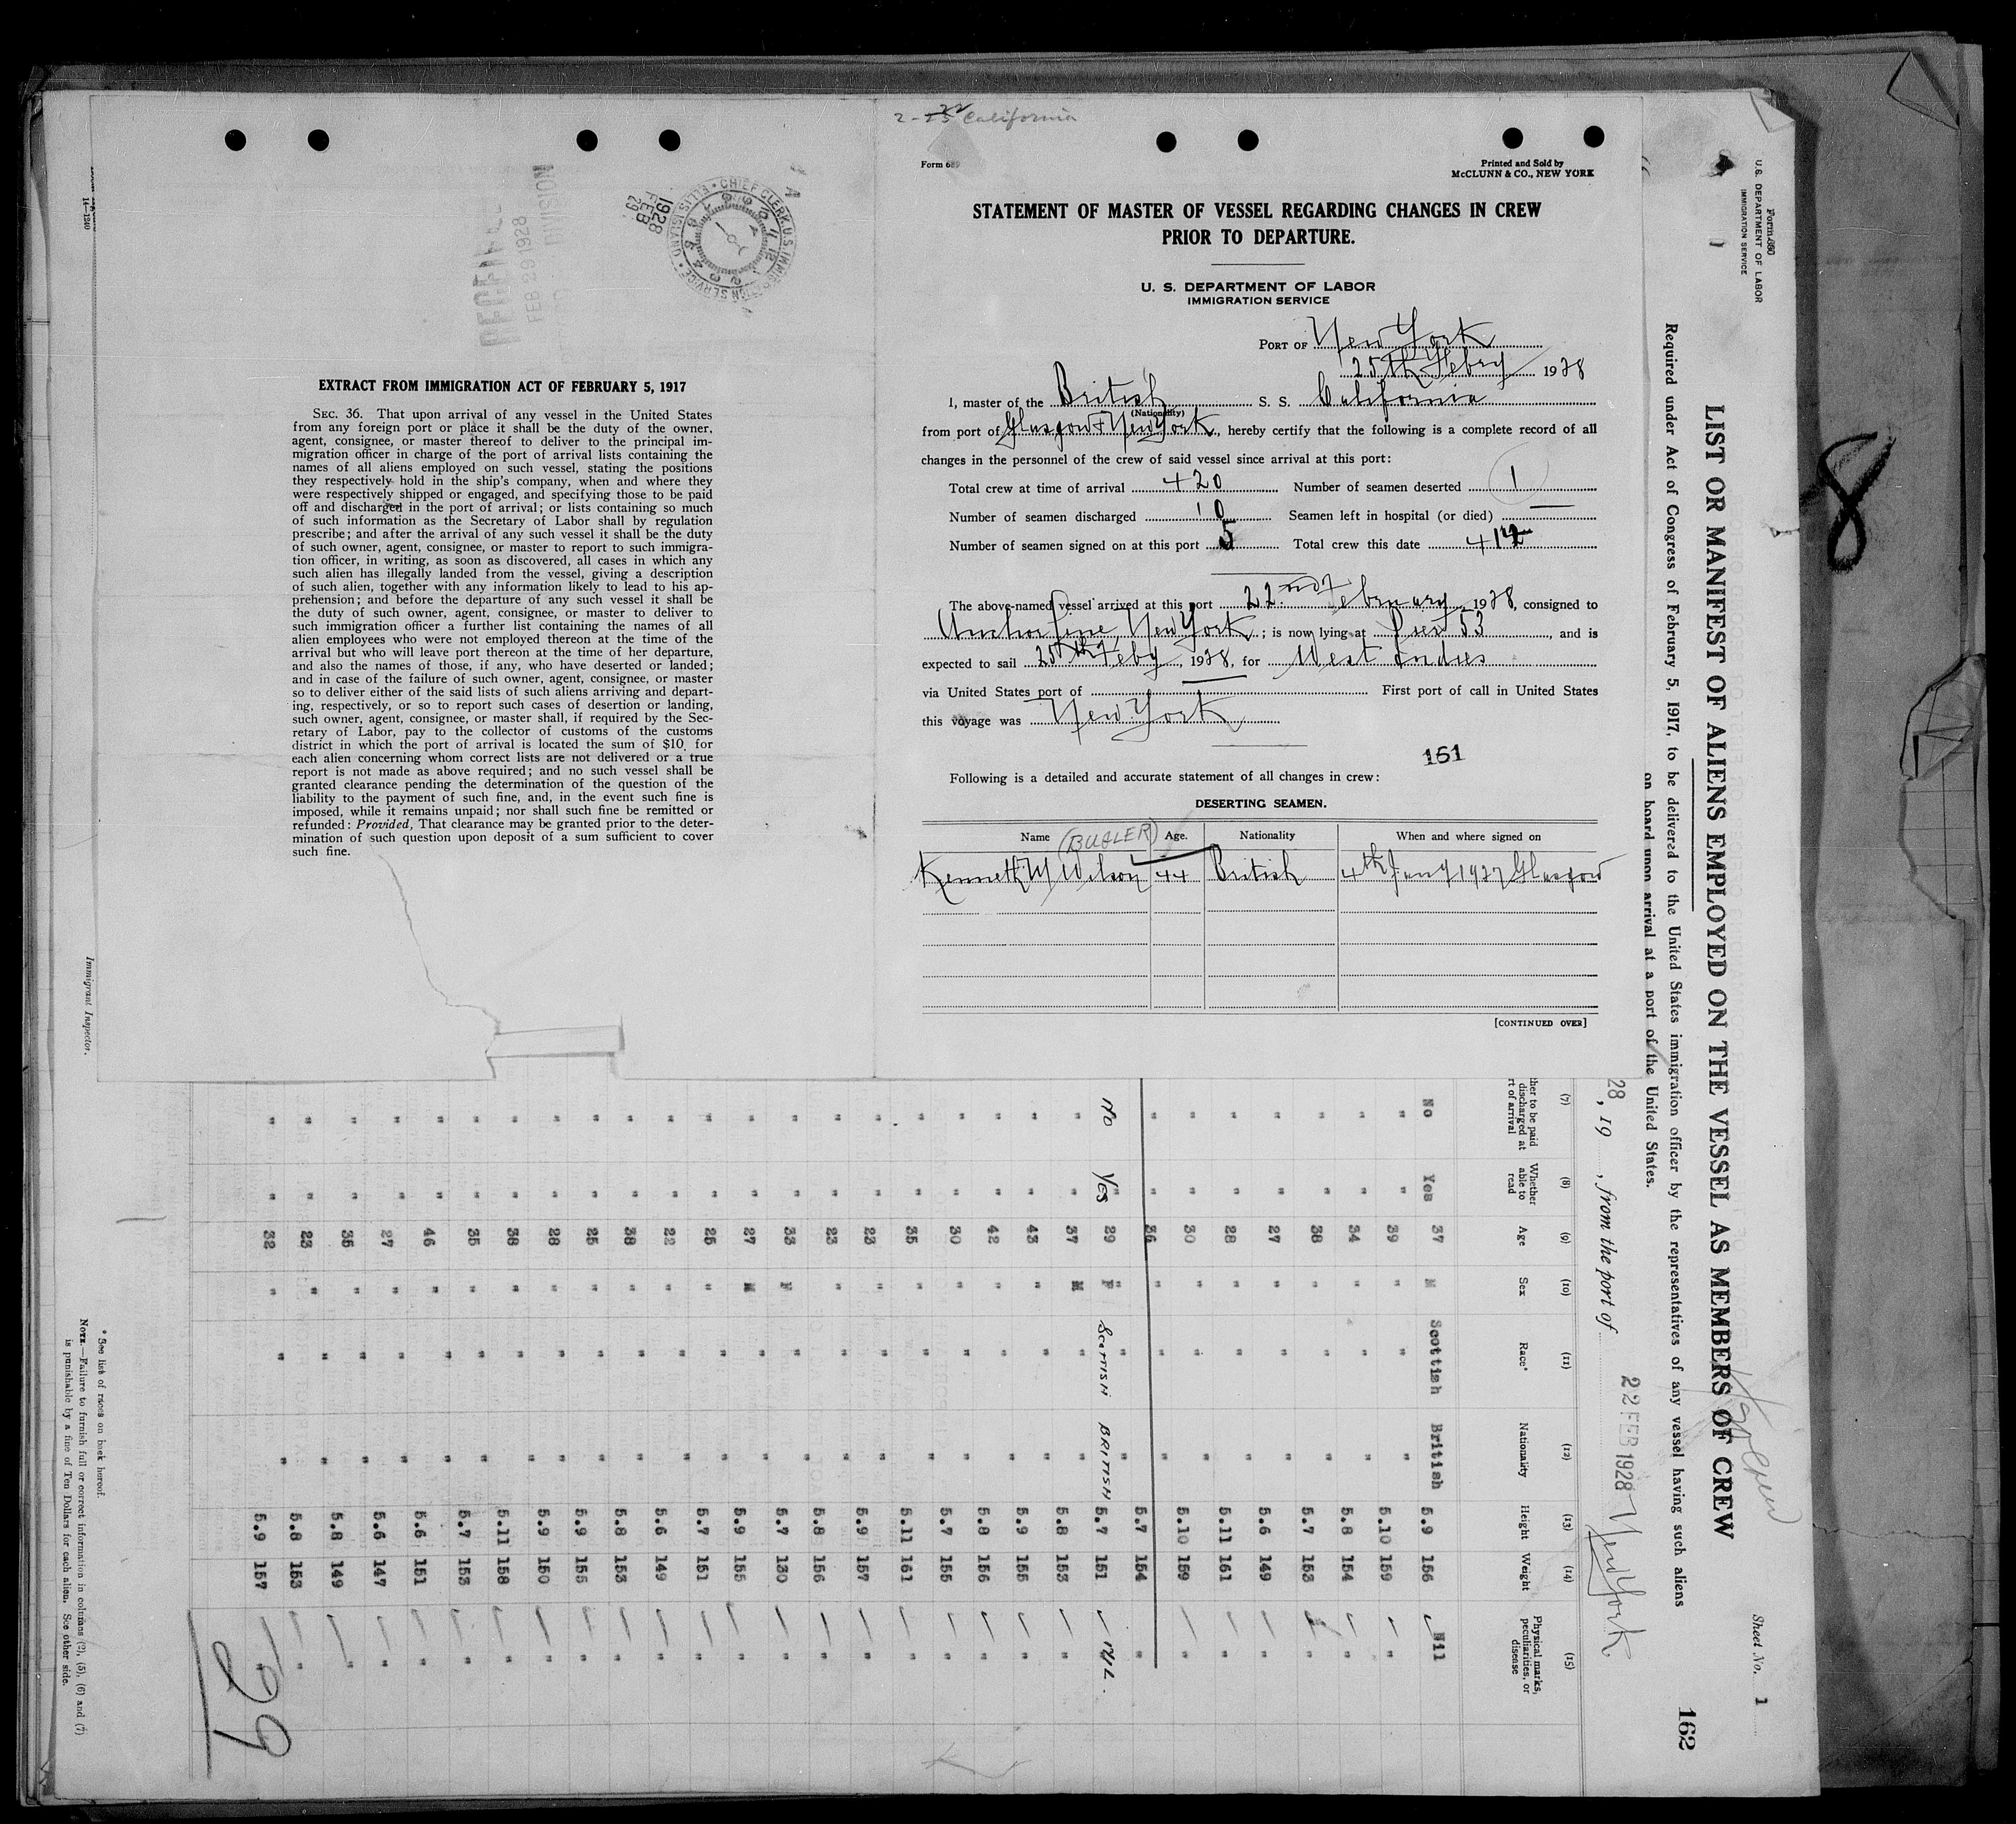 2-22 California
Form 689
Printed and Sold by
McCLUNN & CO., NEW YORK
STATEMENT OF MASTER OF VESSEL REGARDING CHANGES IN CREW
PRIOR TO DEPARTURE.
U. S. DEPARTMENT OF LABOR
IMMIGRATION SERVICE
PORT OF New York
25th Febry 1928
I, master of the British S. S. California
(Nationality)
from port of Glasgow & New York, hereby certify that the following is a complete record of all
changes in the personnel of the crew of said vessel since arrival at this port:
Total crew at time of arrival 420 Number of seamen deserted 1
Number of seamen discharged 10 Seamen left in hospital (or died)
Number of seamen signed on at this port 5 Total crew this date 414
The above-named vessel arrived at this port 22nd February, 1928, consigned to
Anchor Line, New York; is now lying at Pier 53, and is
expected to sail 25th Feby, 1928, for West Indies
via United States port of First port of call in United States
this voyage was New York
161
Following is a detailed and accurate statement of all changes in crew:
DESERTING SEAMEN.
Name (BUGLER) Age. Nationality When and where signed on
Kenneth M Wilson 44 British 4th Jany 1927 Glasgow
[CONTINUED OVER]
14-1240
RECEIVED
FEB 29 1928
DIVISION
1928
FEB
29
CHIEF CLERK. U.S. IMMIGRATION SERVICE • ELLIS ISLAND
EXTRACT FROM IMMIGRATION ACT OF FEBRUARY 5, 1917
SEC. 36. That upon arrival of any vessel in the United States
from any foreign port or place it shall be the duty of the owner,
agent, consignee, or master thereof to deliver to the principal im-
migration officer in charge of the port of arrival lists containing the
names of all aliens employed on such vessel, stating the positions
they respectively hold in the ship's company, when and where they
were respectively shipped or engaged, and specifying those to be paid
off and discharged in the port of arrival; or lists containing so much
of such information as the Secretary of Labor shall by regulation
prescribe; and after the arrival of any such vessel it shall be the duty
of such owner, agent, consignee, or master to report to such immigra-
tion officer, in writing, as soon as discovered, all cases in which any
such alien has illegally landed from the vessel, giving a description
of such alien, together with any information likely to lead to his ap-
prehension; and before the departure of any such vessel it shall be
the duty of such owner, agent, consignee, or master to deliver to
such immigration officer a further list containing the names of all
alien employees who were not employed thereon at the time of the
arrival but who will leave port thereon at the time of her departure,
and also the names of those, if any, who have deserted or landed;
and in case of the failure of such owner, agent, consignee, or master
so to deliver either of the said lists of such aliens arriving and depart-
ing, respectively, or so to report such cases of desertion or landing,
such owner, agent, consignee, or master shall, if required by the Sec-
retary of Labor, pay to the collector of customs of the customs
district in which the port of arrival is located the sum of $10 for
each alien concerning whom correct lists are not delivered or a true
report is not made as above required; and no such vessel shall be
granted clearance pending the determination of the question of the
liability to the payment of such fine, and, in the event such fine is
imposed, while it remains unpaid; nor shall such fine be remitted or
refunded: Provided, That clearance may be granted prior to the deter-
mination of such question upon deposit of a sum sufficient to cover
such fine.
Immigrant Inspector.
8
Form 680
U.S. DEPARTMENT OF LABOR
IMMIGRATION SERVICE
Sheet No. 1
LIST OR MANIFEST OF ALIENS EMPLOYED ON THE VESSEL AS MEMBERS OF CREW
162
Required under Act of Congress of February 5, 1917, to be delivered to the United States immigration officer by the representatives of any vessel having such aliens
on board upon arrival at a port of the United States.
22 FEB 1928 New York
28, 19 , from the port of
(7) (8) (9) (10) (11) (12) (13) (14) (15)
ther to be paid discharged at rt of arrival Whether able to read Age Sex Race* Nationality Height Weight Physical marks, peculiarities, or disease
No Yes 37 M Scottish British 5.9 156 Nil
" " 39 " " " 5.10 159 "
" " 34 " " " 5.8 154 "
" " 38 " " " 5.7 153 "
" " 27 " " " 5.6 149 "
" " 28 " " " 5.11 161 "
" " 30 " " " 5.10 159 "
" " 36 " " " 5.7 154 "
NO YES 29 F SCOTTISH BRITISH 5.7 151 NIL.
" " 37 M " " 5.8 153 "
" " 43 " " " 5.9 155 "
" " 42 " " " 5.8 156 "
" " 30 " " " 5.7 155 "
" " 35 " " " 5.11 161 "
" " 23 " " " 5.9 157 "
" " 23 " " " 5.8 156 "
" " 33 F " " 5.7 130 "
" " 27 M " " 5.9 155 "
" " 25 " " " 5.7 151 "
" " 22 " " " 5.6 149 "
" " 38 " " " 5.8 153 "
" " 25 " " " 5.9 155 "
" " 28 " " " 5.9 150 "
" " 38 " " " 5.11 158 "
" " 35 " " " 5.7 153 "
" " 46 " " " 5.6 151 "
" " 27 " " " 5.6 147 "
" " 35 " " " 5.8 149 "
" " 23 " " " 5.8 153 "
" " 32 " " " 5.9 157 "
29
* See list of races on back hereof.
NOTE.—Failure to furnish full or correct information in columns (2), (5), (6) and (7)
is punishable by a fine of Ten Dollars for each alien. See other side.